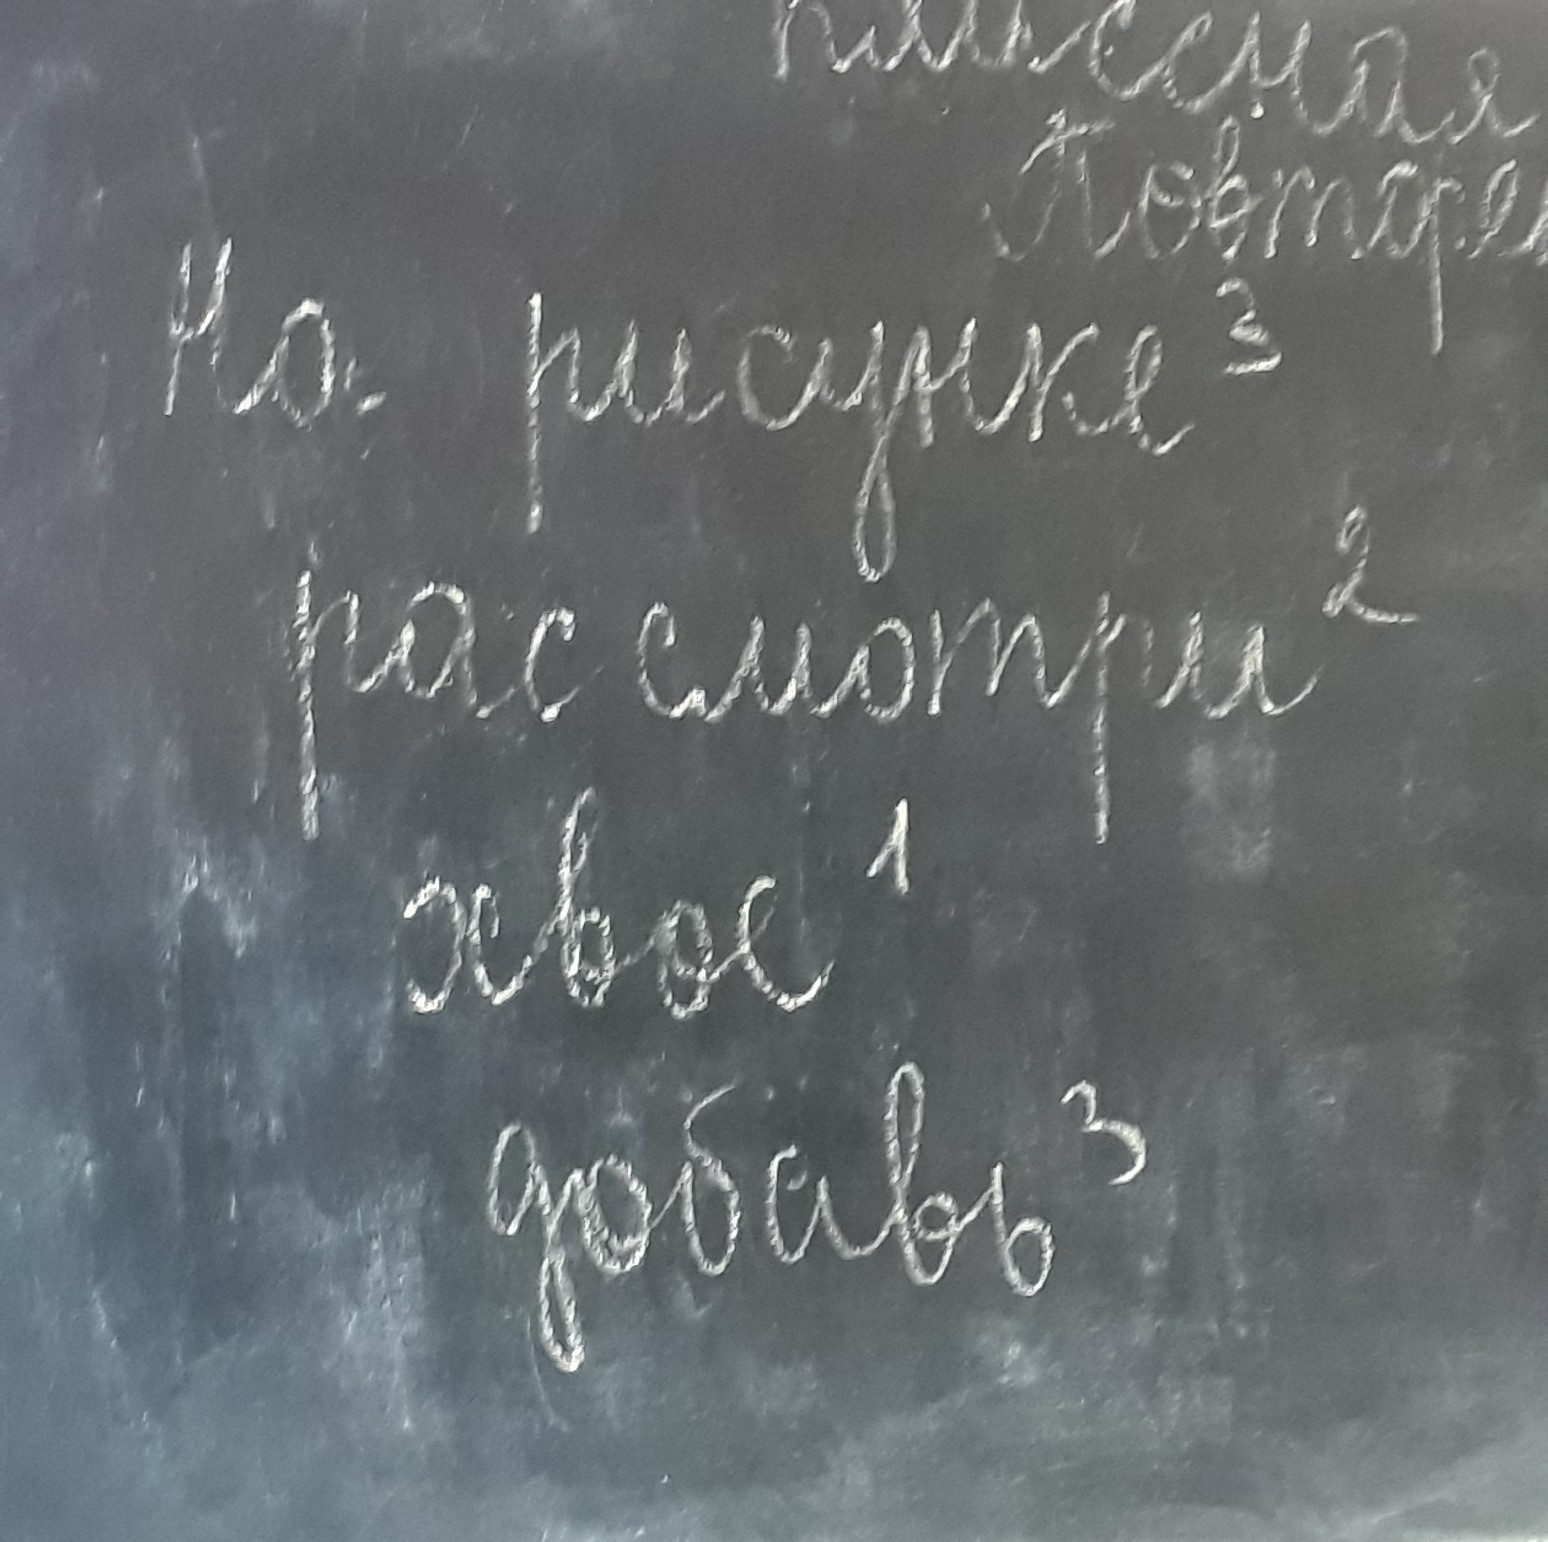 классная
Повторен
На рисунке³
рассмотри²
хвое¹
добавь³